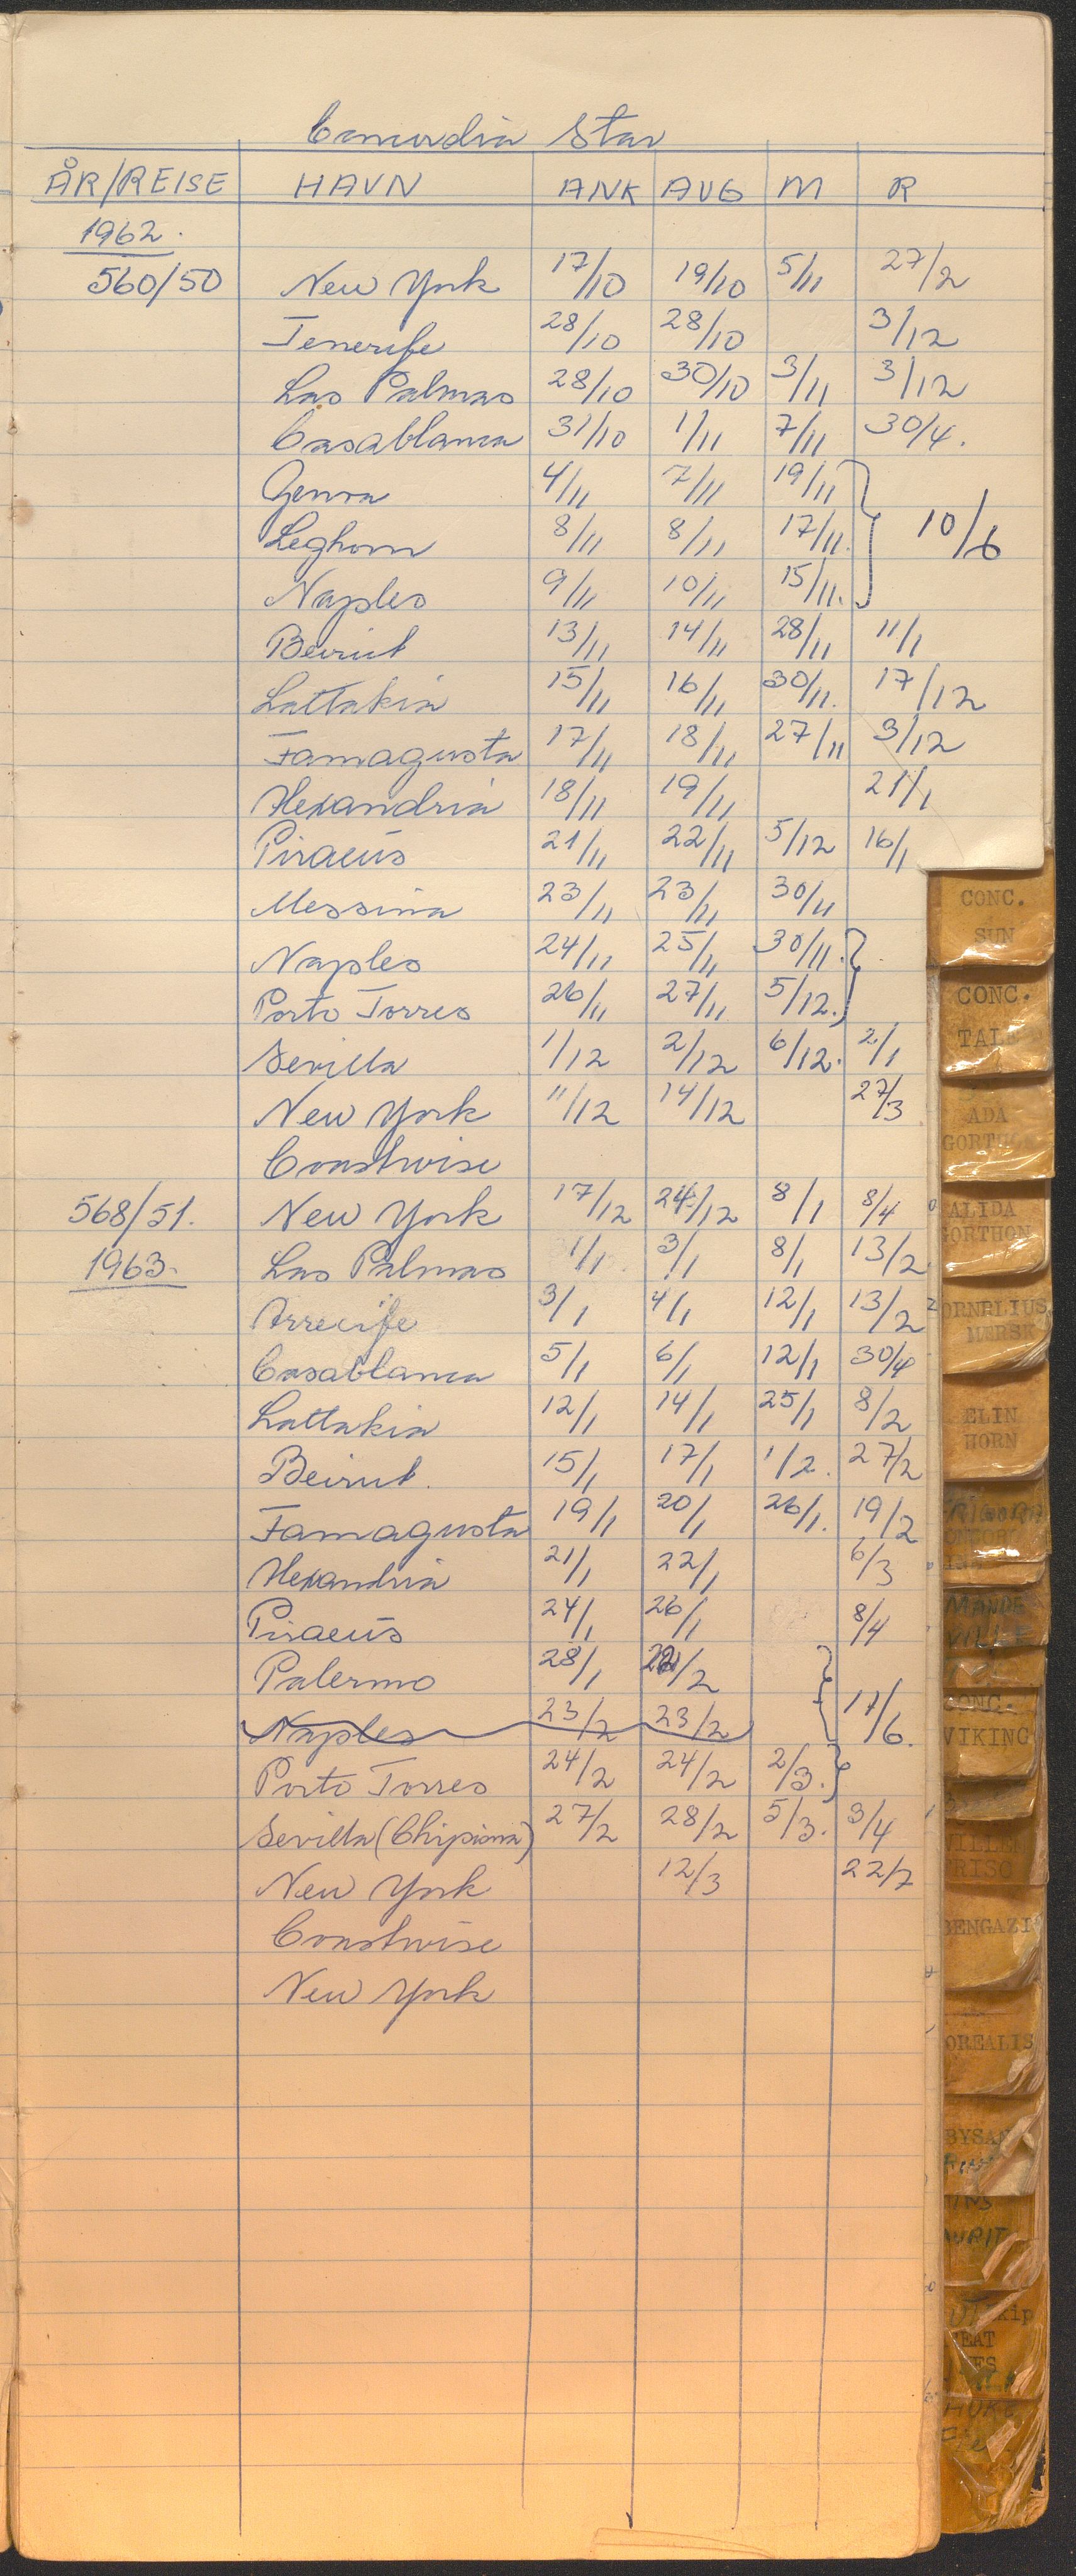 Concordia Star
ÅR/REISE HAVN ANK AVG M R
1962.
560/50 New York 17/10 19/10 5/11 27/2
Tenerife 28/10 28/10 3/12
Las Palmas 28/10 30/10 3/11 3/12
Casablanca 31/10 1/11 7/11 30/4.
Genoa 4/11 7/11 19/11
Leghorn 8/11 8/11 17/11. 10/6
Naples 9/11 10/11 15/11.
Beirut 13/11 14/11 28/11 11/1
Lattakia 15/11 16/11 30/11. 17/12
Famagusta 17/11 18/11 27/11 3/12
Alexandria 18/11 19/11 21/1
Piraeus 21/11 22/11 5/12 16/1
Messina 23/11 23/11 30/11
Naples 24/11 25/11 30/11.
Porto Torres 26/11 27/11 5/12.
Sevilla 1/12 2/12 6/12. 2/1
New York 11/12 14/12 27/3
Coastwise
568/51. New York 17/12 24/12 8/1 8/4
1963. Las Palmas 1/1 3/1 8/1 13/2
Arrecife 3/1 4/1 12/1 13/2
Casablanca 5/1 6/1 12/1 30/4
Lattakia 12/1 14/1 25/1 8/2
Beirut. 15/1 17/1 1/2. 27/2
Famagusta 19/1 20/1 26/1. 19/2
Alexandria 21/1 22/1 6/3
Piraeus 24/1 26/1 8/4
Palermo 28/1 /2
Naples 23/2 23/2 17/6.
Porto Torres 24/2 24/2 2/3.
Sevilla (Chipiona) 27/2 28/2 5/3. 3/4
New York 12/3 22/7
Coastwise
New York
CONC.
SUN
CONC.
TALE
ADA
GORTHON
ALIDA
GORTHON
ORNELIUS
MÆRSK
ELIN
HORN
MANDE
VILLE
CONC.
VIKING
VILLEM
FRISO
BENGAZI
OREALIS